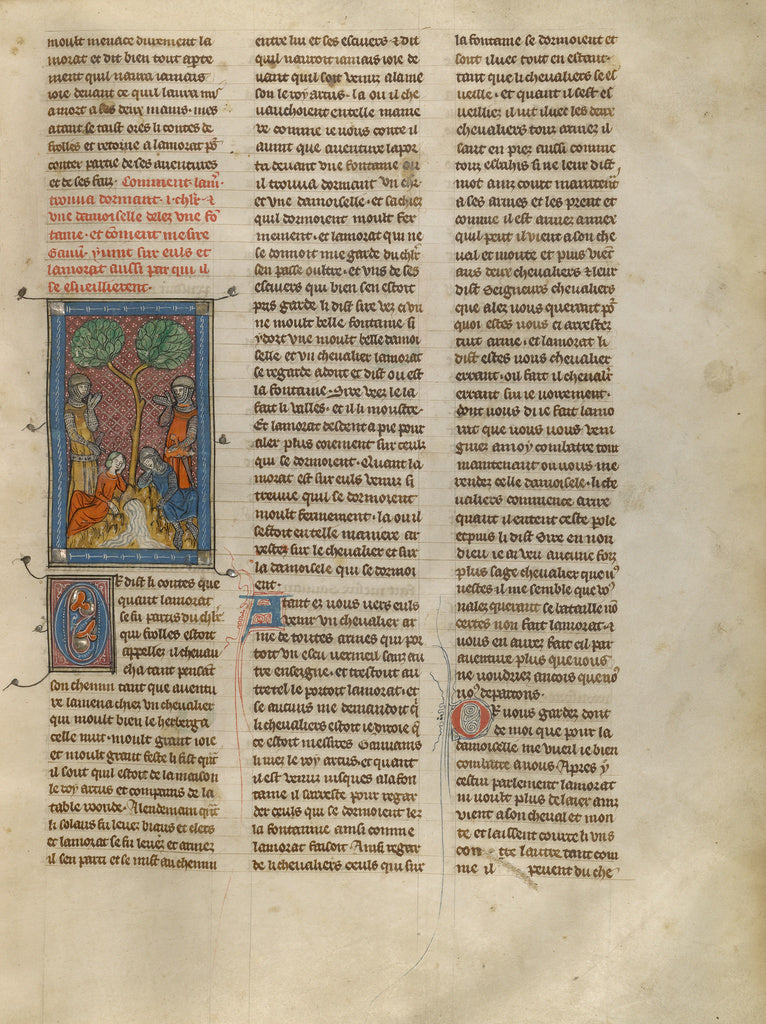 moult menace durement la
morat et dit bien tout apte
ment quil naura iamais
ioie deuant ce quil laura mis
a mort a ses deux mains. mes
atant se taist ores li contes de
frolles et retorne a lamorat por
conter partie de ses auentures
et de ses faiz. Comment lam.
trouua dormant .i. chlr. &
vne damoiselle delez vne fon
taine. et coment mesire
Gauu. y uint sus euls et
lamorat aussi par qui il
se esueillierent.
Or dist li contes que
quant lamorat
se fu partis du chlr.
qui frolles estoit
appellez il cheuau
cha tant pensant
son chemin tant que auentu
re lamena chiez un cheualier
qui moult bien le herberga
celle nuit. moult grant ioie
et moult grant feste li fist quant
il sout quil estoit de la maison
le roy artus et compains de la
table roonde. A lendemain quant
li solaus fu leuez biaus et clers
et lamorat se fu leuez et armez
il sen parti et se mist au chemin
entre lui et ses escuiers & dit
quil nauroit iamais ioie de
uant quil soit venuz a la me
son le roy artus. la ou il che
uauchoient en telle manie
re comme ie uous conte il
auint que auenture lapor
ta deuant une fontaine ou
il trouua dormant un chr.
et une damoiselle. et sachiez
quil dormoient moult fer
mement. et lamorat qui ne
se donnoit mie garde du chlr
sen passe oultre. et uns de ses
escuiers qui bien sen estoit
pris garde li dist sire vez ci un
ne moult belle fontaine si
y dort une moult belle damoi
selle et un cheualier lamorat
se regarde adont et dist ou est
la fontaine. Sire veez le la
fait li valles. et il li moustre.
Et lamorat descent a pie pour
aler plus coiement sur ceulz
qui se dormoient. Quant la
morat est sur euls venuz si
treuue quil se dormoient
moult fermement. la ou il
sestoit en telle maniere ar
restez sur le cheualier et sur
la damoisele qui se dormoi
ent.
Atant ez uous uers euls
venir un cheualier ar
me de toutes armes qui por
toit un escu vermeil sanz au
tre enseigne. et trestout au
tretel le portoit lamorat. et
se aucuns me demandoit qui
li cheualiers estoit ie diroie que
ce estoit messires Gauuains
li niez le roy artus. et quant
il est venuz iusques a la fon
taine il sarreste pour regar
der ceuls qui se dormoient lez
la fontainne ainsi comme
lamorat faisoit. Ainsi regar
de li cheualiers ceuls qui sur
la fontaine se dormoient et
sont iluec tout en estant.
tant que li cheualiers se es
ueille. et quant il sest es
ueilliez il uit iluec les deux
cheualiers touz armez il
saut en piez aussi comme
touz esbahis si ne leur dist
mot ainz court maintenant
a ses armes et les prent et
comme il est armez aincez
quil peut il vient a son che
ual et monte et puis vient
aus deux cheualiers & leur
dist Seigneurs cheualiers
que alez uous querant por
quoi estes uous ci arrestez
tuit arme. et lamorat li
dist estes uous cheualier
errant. oil fait il cheualier
errant sui ie uoirement.
dont uous di ie fait lamo
rat que uous uous ven
guiez a moy combatre tout
maintenant ou uous me
rendez celle damoisele. li che
ualiers commence a rire
quant il entent ceste pole
et puis li dist Sire en non
dieu ie ai veu aucune foiz
plus sage cheualier que uous
nestes il me semble que vo
nalez querant se bataille non
certes non fait lamorat. &
uous en aurez fait cil par
auenture plus que uous
ne voudriez ancois que nous
nous departons.
Or uous gardez dont
de moi que pour la
damoiselle me vueil ie bien
combatre a uous. Apres
cestui parlement lamorat
ni uoult plus delaier ainz
vient a son cheual et mon
te et laissent courre li uns
con tre lautre tant com
me il peuent du che